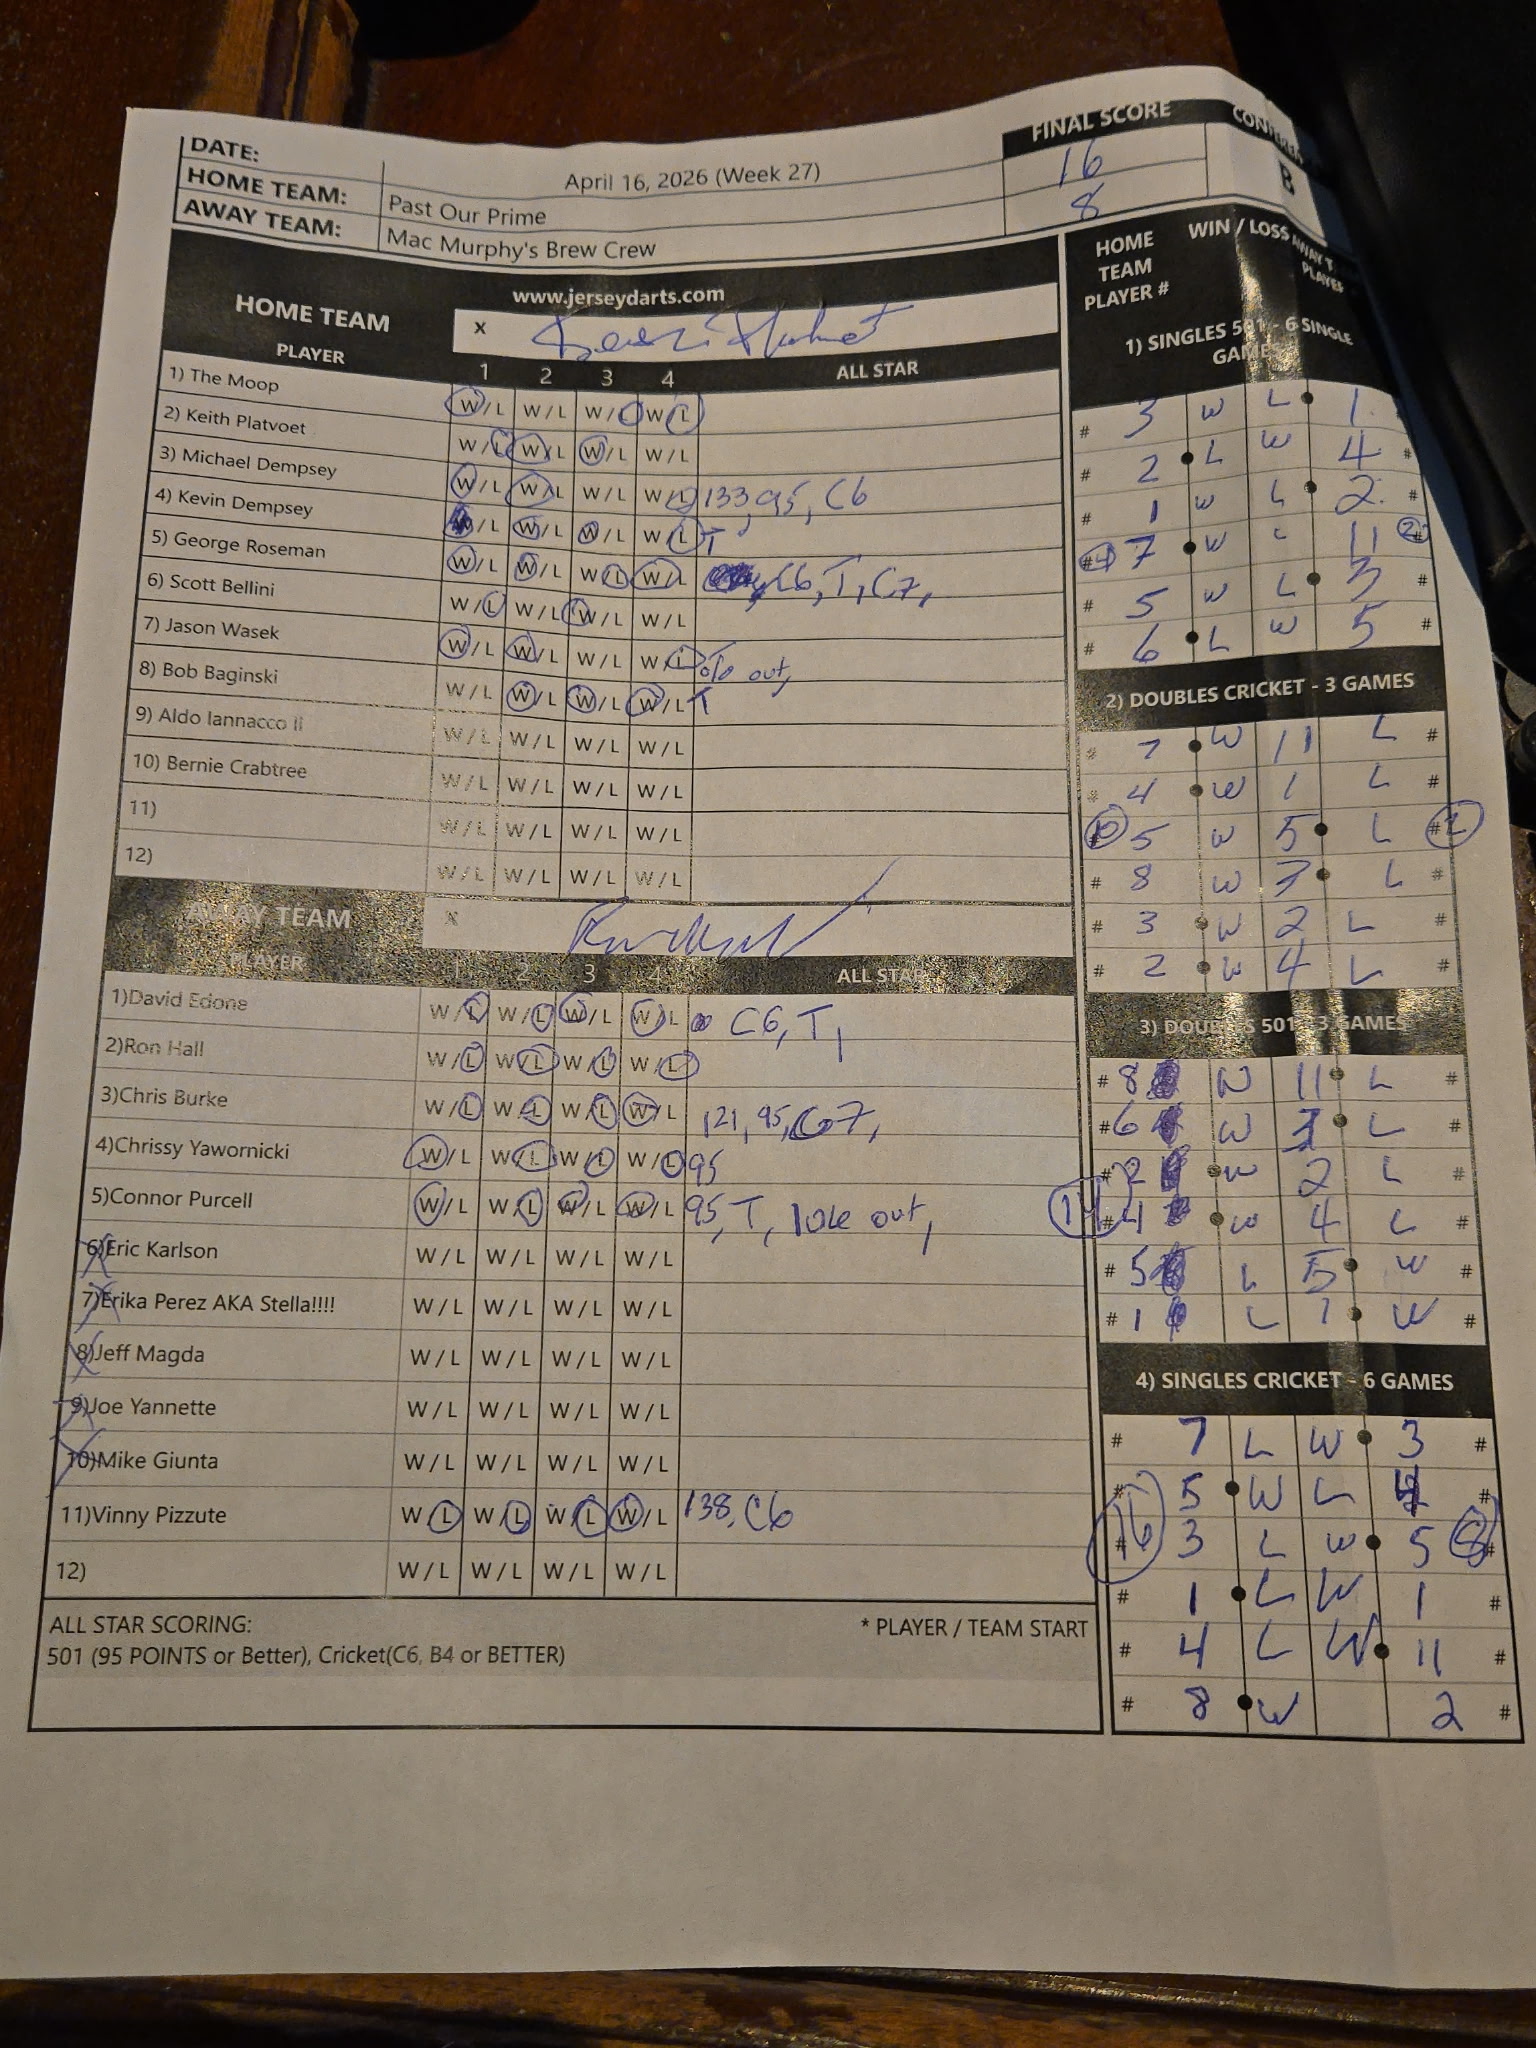 DATE: April 16, 2026 (Week 27)
HOME TEAM: Past Our Prime
AWAY TEAM: Mac Murphy's Brew Crew
FINAL SCORE
16
8
B
www.jerseydarts.com
HOME TEAM x
PLAYER 1 2 3 4 ALL STAR
1) The Moop W/L W/L W/L W/L
2) Keith Platvoet W/L W/L W/L W/L
3) Michael Dempsey W/L W/L W/L W/L 133, 95, C6
4) Kevin Dempsey W/L W/L W/L W/L T
5) George Roseman W/L W/L W/L W/L C6, T, C7,
6) Scott Bellini W/L W/L W/L W/L
7) Jason Wasek W/L W/L W/L W/L out,
8) Bob Baginski W/L W/L W/L W/L T
9) Aldo Iannacco II W/L W/L W/L W/L
10) Bernie Crabtree W/L W/L W/L W/L
11) W/L W/L W/L W/L
12) W/L W/L W/L W/L
AWAY TEAM x
PLAYER 1 2 3 4 ALL STAR
1)David Edone W/L W/L W/L W/L C6, T,
2)Ron Hall W/L W/L W/L W/L
3)Chris Burke W/L W/L W/L W/L 121, 95, C7,
4)Chrissy Yawornicki W/L W/L W/L W/L 95
5)Connor Purcell W/L W/L W/L W/L 95, T, out,
6)Eric Karlson W/L W/L W/L W/L
7)Erika Perez AKA Stella!!!! W/L W/L W/L W/L
8)Jeff Magda W/L W/L W/L W/L
9)Joe Yannette W/L W/L W/L W/L
10)Mike Giunta W/L W/L W/L W/L
11)Vinny Pizzute W/L W/L W/L W/L 138, C6
12) W/L W/L W/L W/L
ALL STAR SCORING: * PLAYER / TEAM START
501 (95 POINTS or Better), Cricket(C6, B4 or BETTER)
HOME TEAM PLAYER # WIN / LOSS
1) SINGLES 501 - 6 SINGLE GAMES
# 3 W L 1 #
# 2 L W 4 #
# 1 W L 2 #
#4 7 W L 11 2#
# 5 W L 3 #
# 6 L W 5 #
2) DOUBLES CRICKET - 3 GAMES
# 7 W 11 L #
# 4 W 1 L #
10 5 W 5 L # 2
# 8 W 3 L #
# 3 W 2 L #
# 2 W 4 L #
3) DOUBLES 501 - 3 GAMES
# 8 W 11 L #
# 6 W 3 L #
# 2 W 2 L #
14 # 4 W 4 L #
# 5 L 5 W #
# 1 L 1 W #
4) SINGLES CRICKET - 6 GAMES
# 7 L W 3 #
# 5 W L 4 #
16 # 3 L W 5 8 #
# 1 L W 1 #
# 4 L W 11 #
# 8 W 2 #